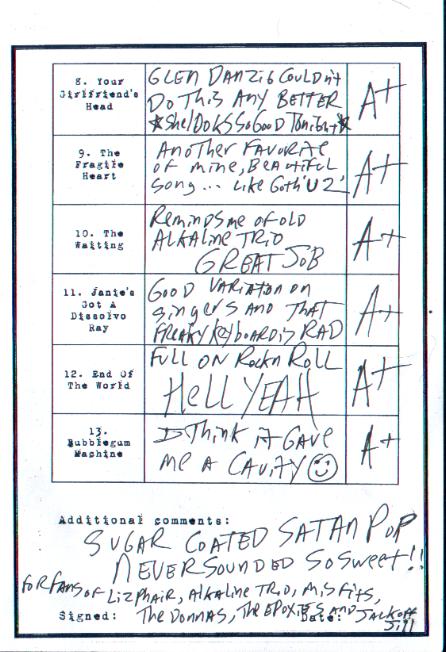 8. Your
Girlfriend's
Head
GLEN DANZIG COULDn't
DO THIS ANY BETTER
*She LOOKS SO GOOD TONIGHT*
A+
9. The
Fragile
Heart
ANOTHER FAVORITE
OF MINE, BEAUTIFUL
SONG... LIKE GOTH 'U2'
A+
10. The
Waiting
Reminds me OF OLD
ALKALINE TRIO
GREAT JOB
A+
11. Janie's
Got A
Dissolvo
Ray
GOOD VARIATON ON
SINGERS AND THAT
FREAKY KEYBOARD IS RAD
A+
12. End Of
The World
FULL ON Rock n ROLL
HeLL YEAH
A+
13.
Bubblegum
Machine
I THINK iT GAVE
ME A CAVITY
A+
Additional comments:
SUGAR COATED SATAN POP
NEVER SOUNDED SO SWEET!!
FOR FANS OF LIZ PHAIR, ALKALINE TRIO, MISFITS,
THE DONNAS, THE EPOXIES AND JACKOFF
JILL
Signed: Date: